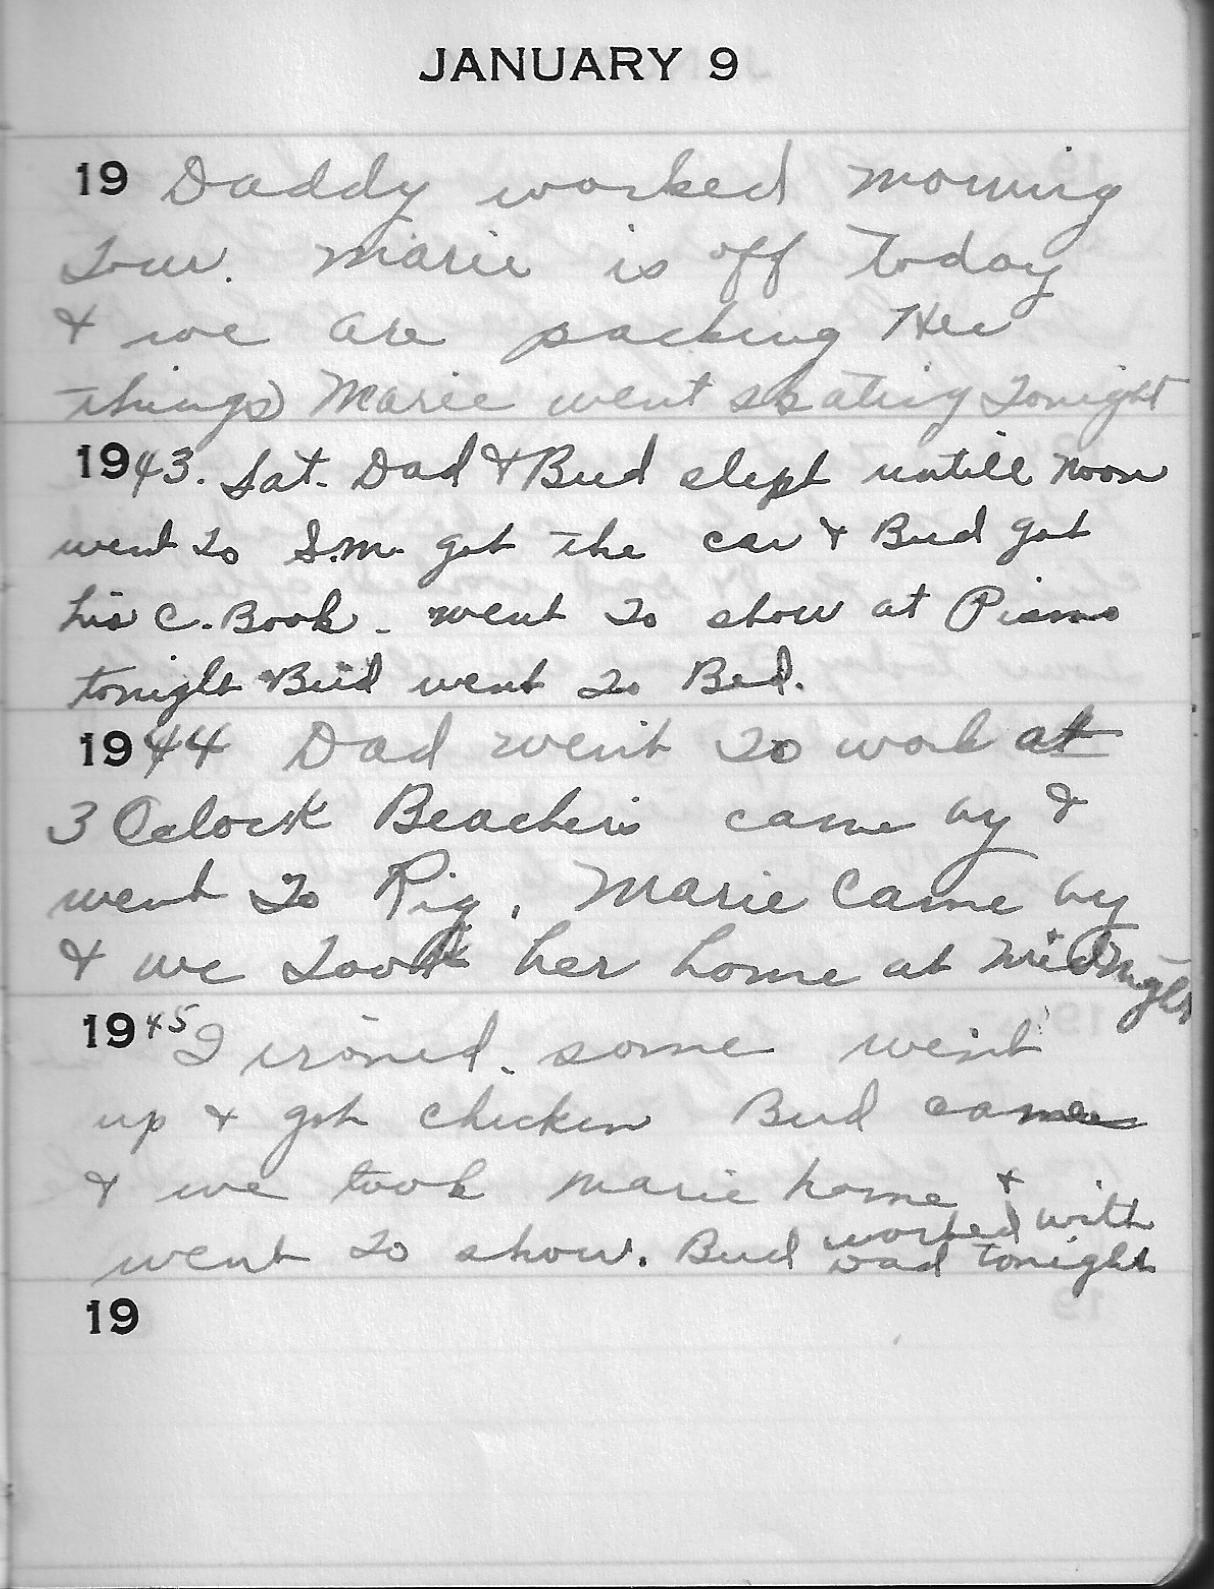 JANUARY 9
19 Daddy worked morning
Tour. Marie is off today
& we are packing Her
things Marie went skating Tonight
1943. Sat. Dad & Bud slept untill noon
went to S.M. got the car & Bud got
his C. Book. went to show at Pismo
tonight Bud went to Bed.
1944 Dad went to work at
3 Oclock Beachers came by &
went to Rig. Marie Came by
& we Took her home at midnight
1945 I ironed. some went
up & got chicken Bud came
& we took marie home &
went to show. Bud worked with
Dad tonight
19